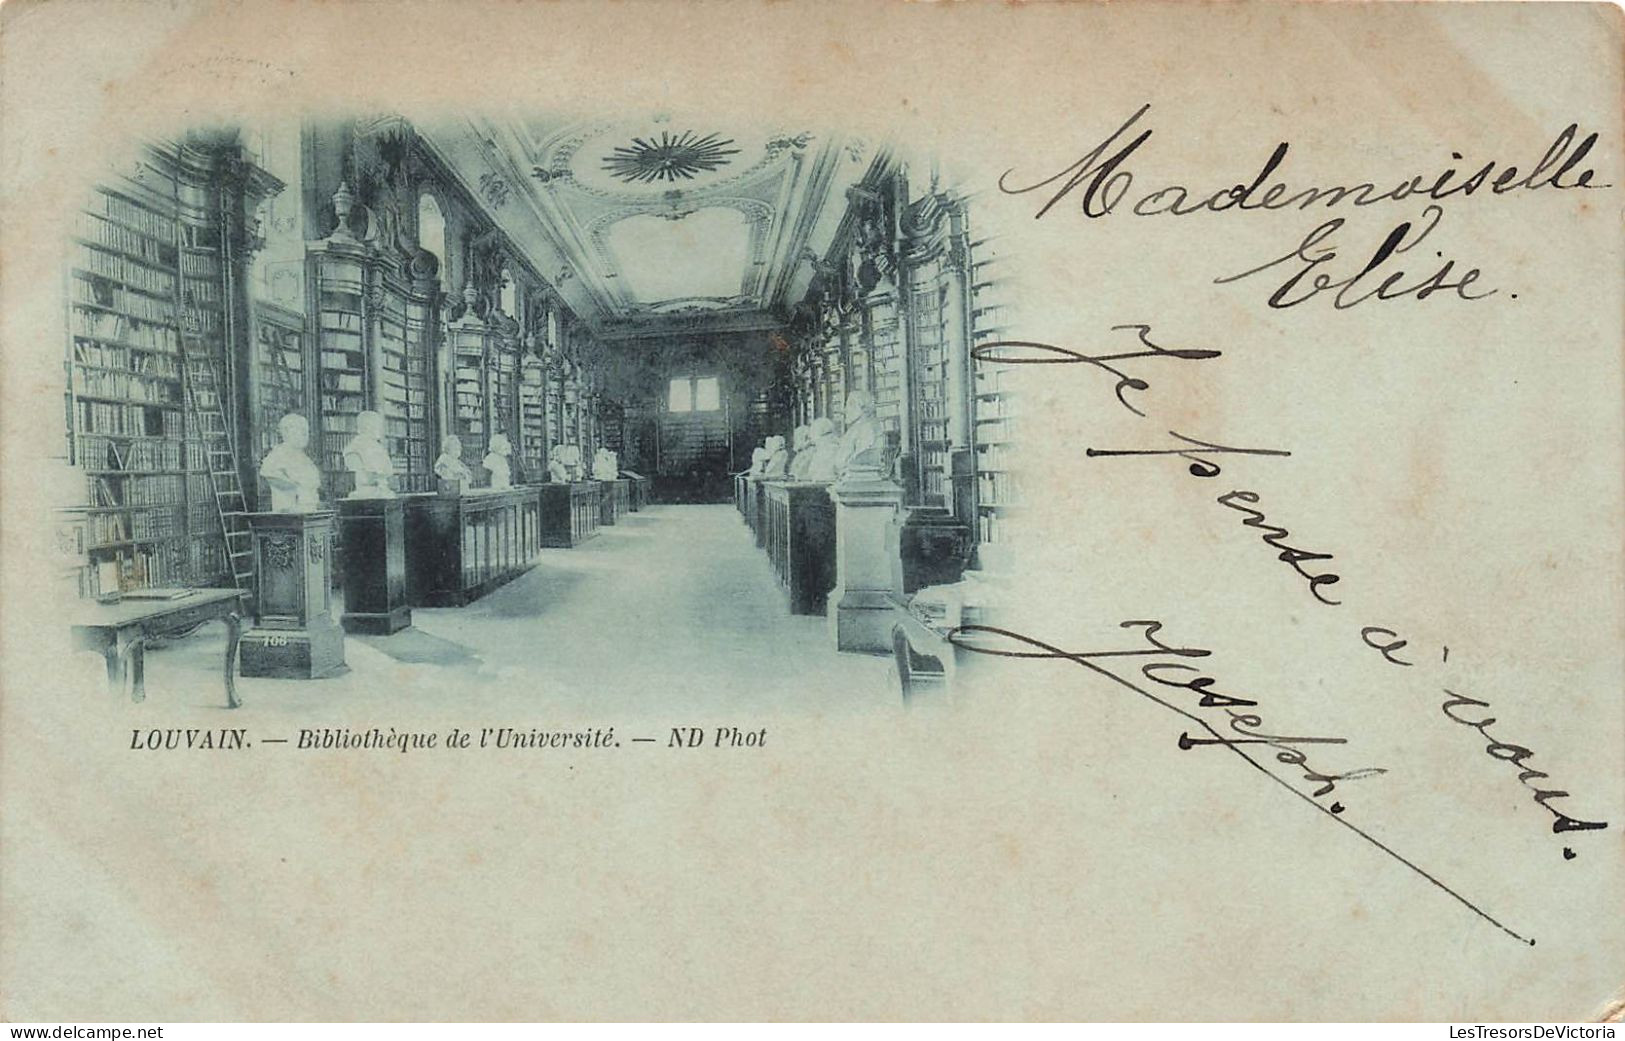 Mademoiselle
Elise.
Je pense à vous.
Joseph.
108
LOUVAIN. — Bibliothèque de l'Université. — ND Phot
www.delcampe.net
LesTresorsDeVictoria